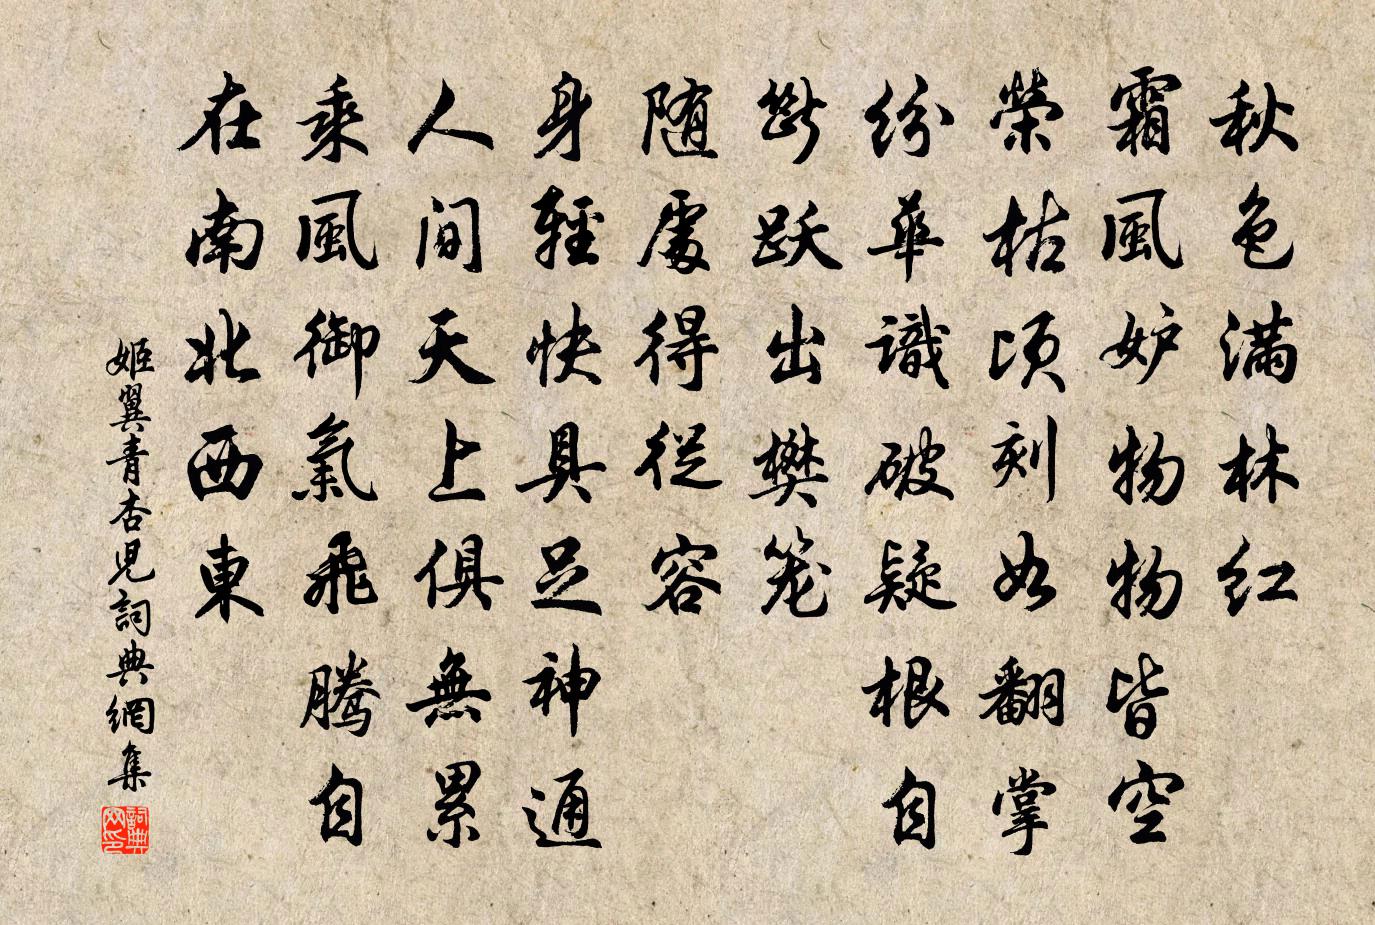 秋色满林红
霜風妒物物皆空
榮枯頃刻如翻掌
紛華識破疑根自
斷跃出樊笼
随處得從容
身輕快具足神通
人间天上俱無累
乘風御氣飛騰自
在南北西東
姬翼青杏児詞典網集
詞典网印